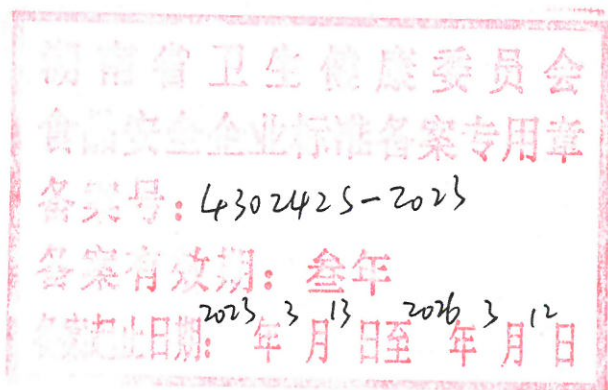 湖南省卫生健康委员会
食品安全企业标准备案专用章
备案号：4302425-2023
备案有效期：叁年
备案起止日期：2023年3月13日至2026年3月12日